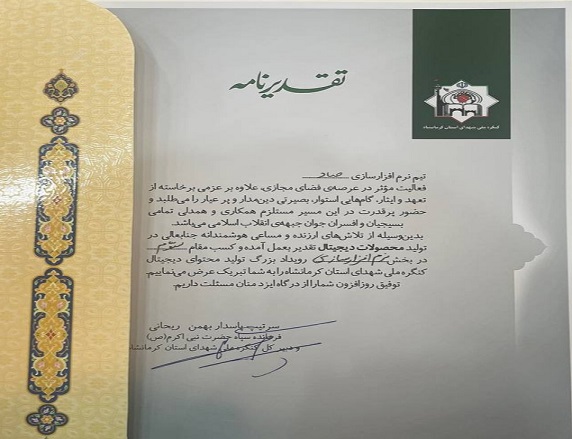 تقدیرنامه
کنگره ملی شهدای استان کرمانشاه
تیم نرم افزارسازی
فعالیت مؤثر در عرصه‌ی فضای مجازی، علاوه بر عزمی برخاسته از
تعهد و ایثار، گام‌هایی استوار، بصیرتی دین‌مدار و پر عیار را می‌طلبد و
حضور پرقدرت در این مسیر مستلزم همکاری و همدلی تمامی
بسیجیان و افسران جوان جبهه‌ی انقلاب اسلامی می‌باشد.
بدین‌وسیله از تلاش‌های ارزنده و مساعی هوشمندانه جنابعالی در
تولید محصولات دیجیتال تقدیر بعمل آمده و کسب مقام سوم
در بخش نرم افزارسازی رویداد بزرگ تولید محتوای دیجیتال
کنگره ملی شهدای استان کرمانشاه را به شما تبریک عرض می‌نماییم.
توفیق روزافزون شما را از درگاه ایزد منان مسئلت داریم.
سرتیپ پاسدار بهمن ریحانی
فرمانده سپاه حضرت نبی اکرم(ص)
و دبیر کل کنگره ملی شهدای استان کرمانشاه